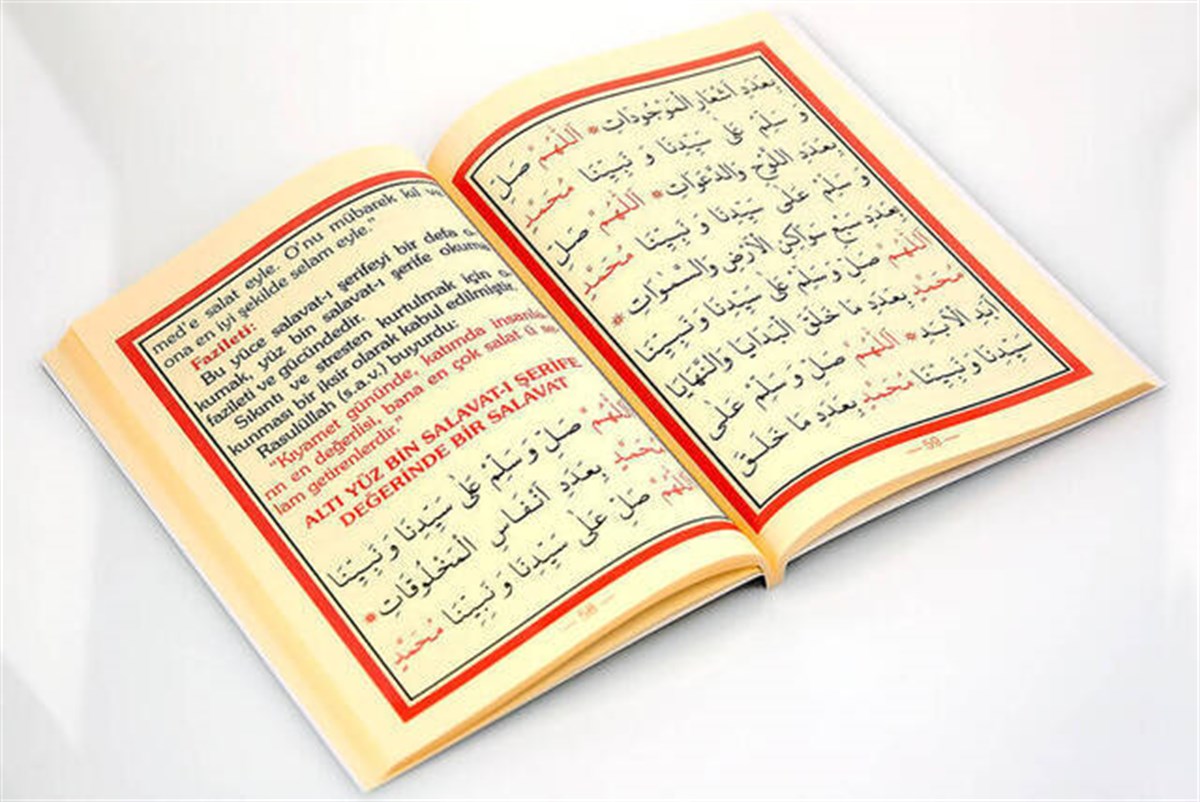 med'e salat eyle. O'nu mübarek kıl ve
ona en iyi şekilde selam eyle."
Fazileti:
Bu yüce salavat-ı şerifeyi bir defa o-
kumak, yüz bin salavat-ı şerife okuma
fazileti ve gücündedir.
Sıkıntı ve stresten kurtulmak için o-
kunması bir iksir olarak kabul edilmiştir.
Rasulüllah (s.a.v.) buyurdu:
"Kıyamet gününde, katımda insanla-
rın en değerlisi, bana en çok salat ü se-
lam getirenlerdir."
ALTI YÜZ BİN SALAVAT-I ŞERİFE
DEĞERİNDE BİR SALAVAT
اَللّٰهُمَّ صَلِّ وَ سَلِّمْ عَلٰى سَيِّدِنَا وَ نَبِيِّنَا
مُحَمَّدٍ بِعَدَدِ اَنْفَاسِ الْمَخْلُوقَاتِ *
اَللّٰهُمَّ صَلِّ عَلٰى سَيِّدِنَا وَ نَبِيِّنَا مُحَمَّدٍ
— 58 —
بِعَدَدِ اَشْعَارِ الْمَوْجُودَاتِ * اَللّٰهُمَّ صَلِّ
وَ سَلِّمْ عَلٰى سَيِّدِنَا وَ نَبِيِّنَا مُحَمَّدٍ
بِعَدَدِ اللَّوْحِ وَالدَّعَوَاتِ * اَللّٰهُمَّ صَلِّ
وَ سَلِّمْ عَلٰى سَيِّدِنَا وَ نَبِيِّنَا مُحَمَّدٍ
بِعَدَدِ سَبْعِ سَوَاكِنِ الْاَرْضِ وَالسَّمٰوَاتِ *
اَللّٰهُمَّ صَلِّ وَ سَلِّمْ عَلٰى سَيِّدِنَا وَ نَبِيِّنَا
مُحَمَّدٍ بِعَدَدِ مَا خَلَقَ الْبَدَايَا وَالنَّهَايَا
اَبَدَ الْاَبَدِ * اَللّٰهُمَّ صَلِّ وَ سَلِّمْ عَلٰى
سَيِّدِنَا وَ نَبِيِّنَا مُحَمَّدٍ بِعَدَدِ مَا خَلَقَ
— 59 —